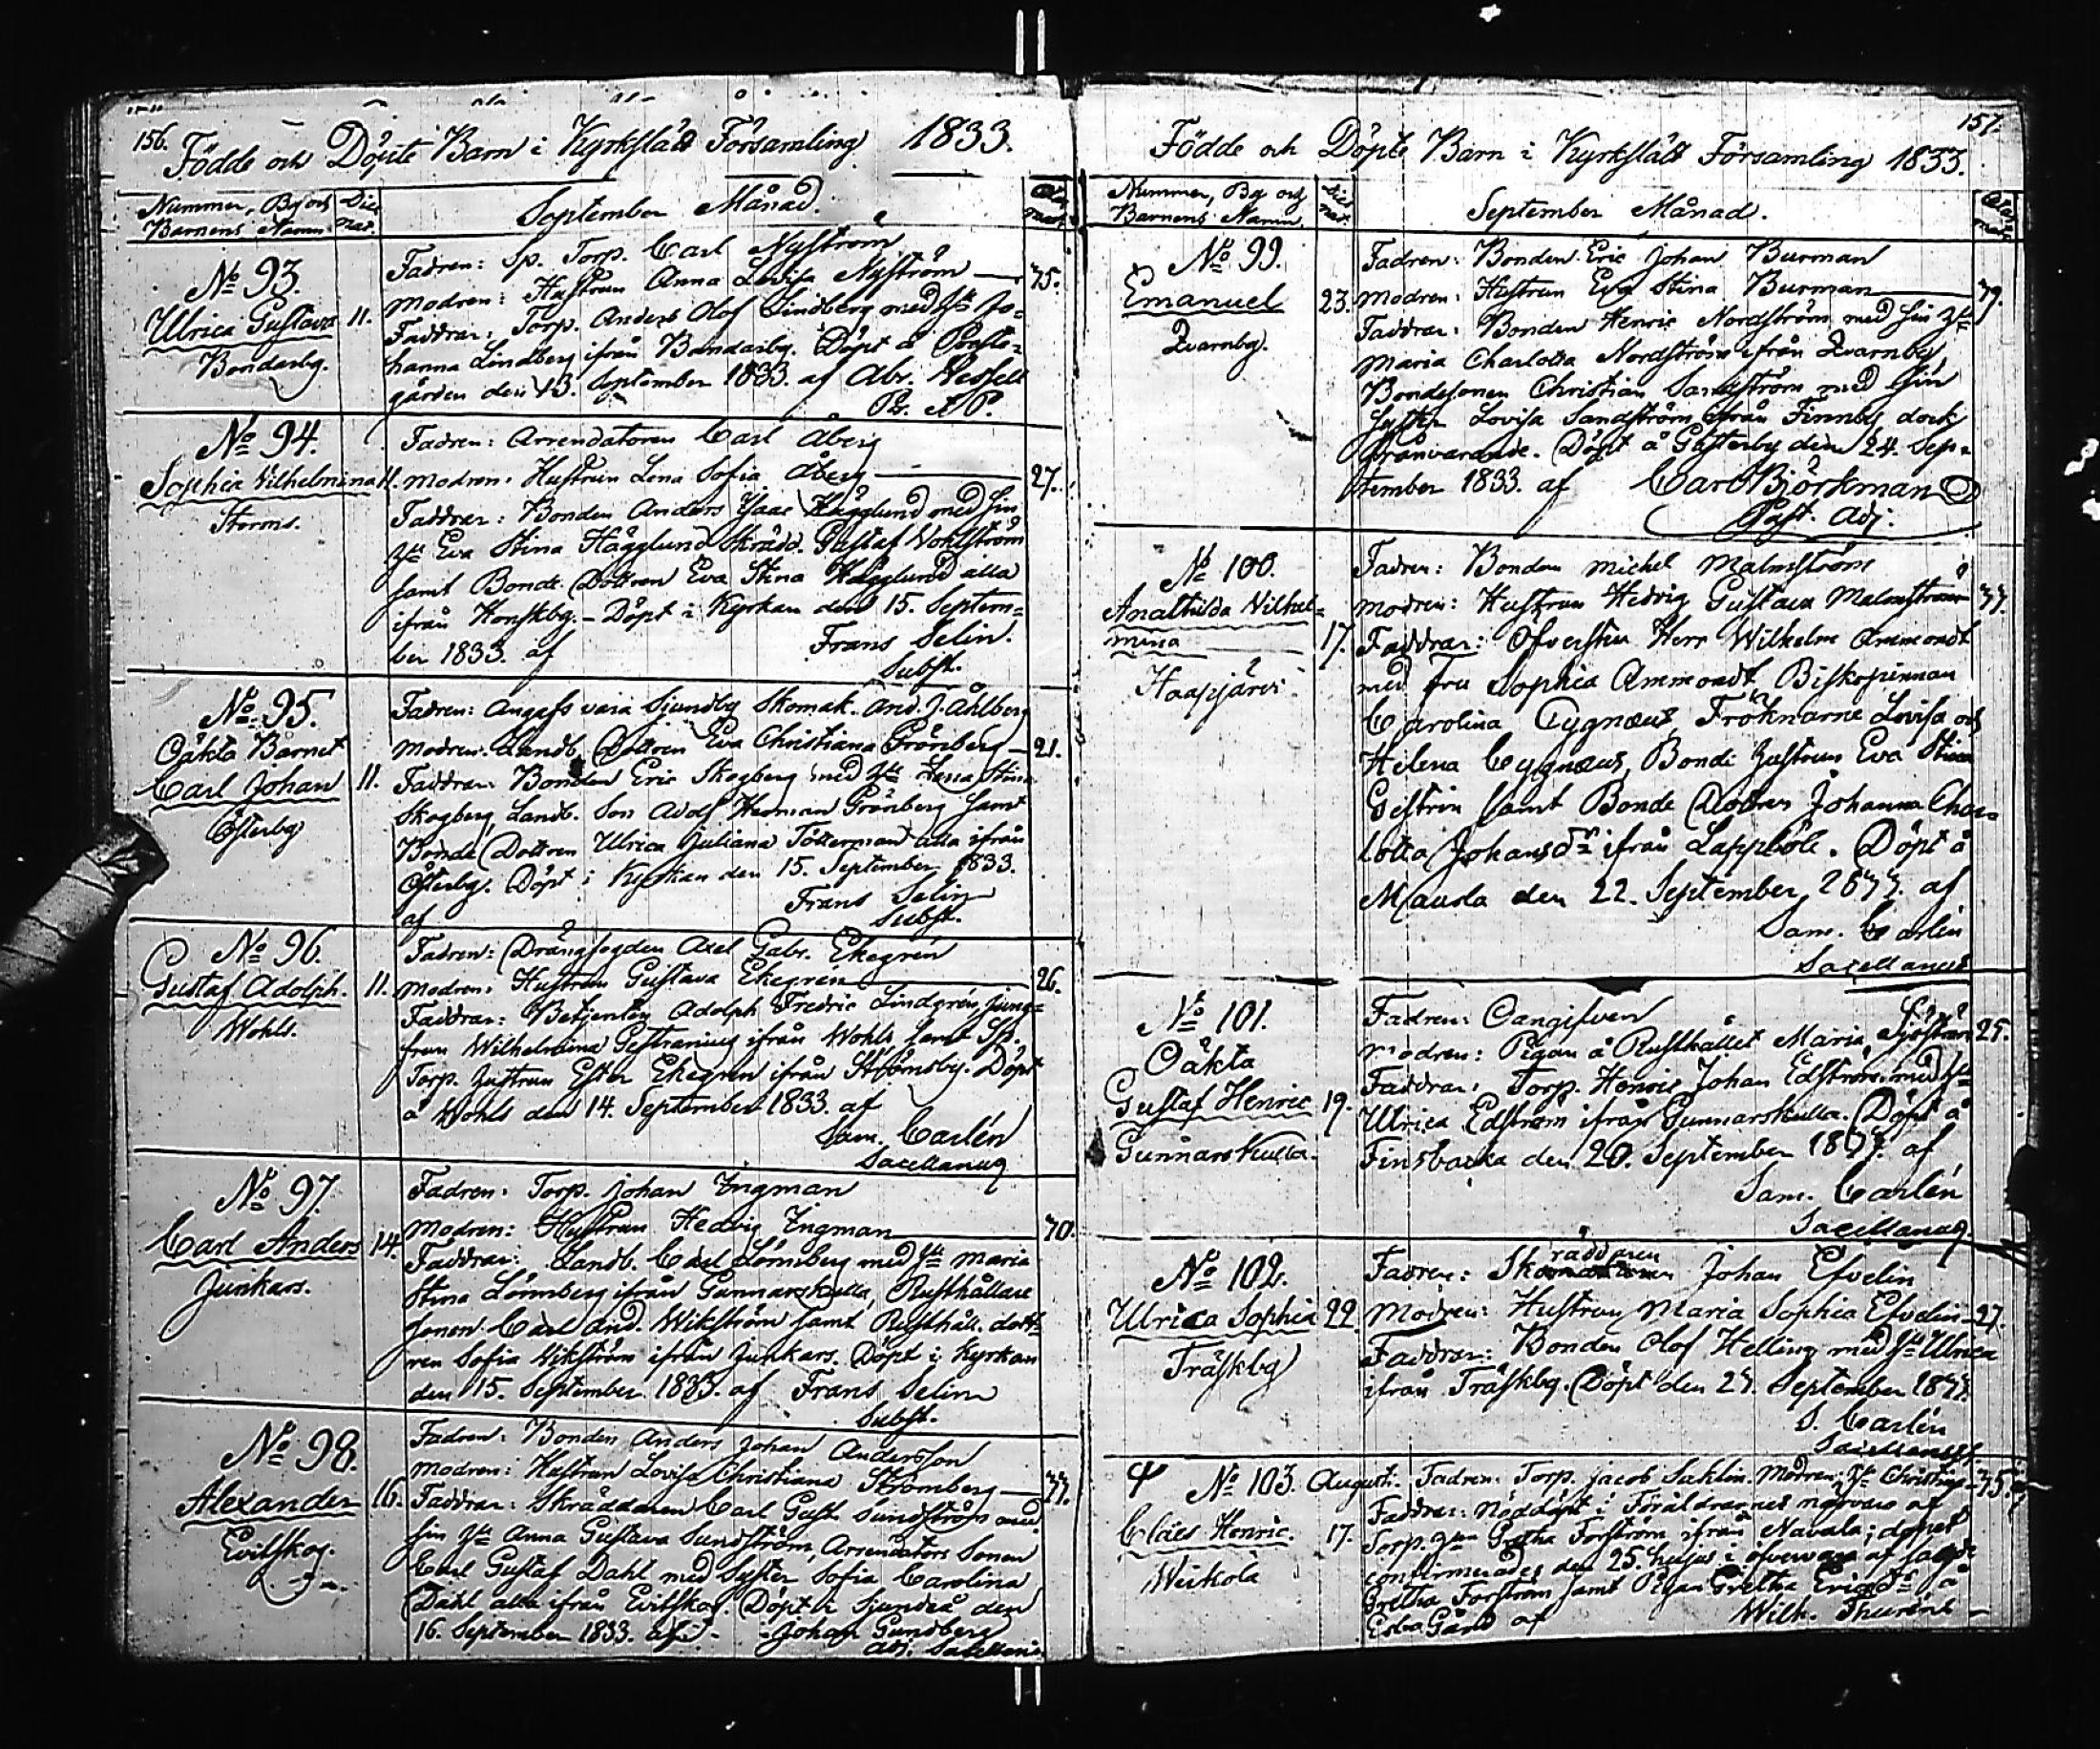 156.
Födde och Döpte Barn i Kyrkslätt Församling 1833.
Nummer, By och
Barnens Namn
Dies
nat.
September Månad.
No 93.
Ulrica Gustava 11.
Bondarby.
Fadren: Sp. Torp. Carl Nyström
Modren: Hustrun Anna Lovisa Nyström — 35.
Faddrar: Torp. Anders Olof Lindberg med Hu Jo=
hanna Lindberg ifrån Bondarby. Döpt å Preste=
gården den 13. September 1833. af Abr. Hessell
No 94.
Sophia Vilhelmina 11.
Storms.
Fadren: Arrendatoren Carl Åberg
Modren: Hustrun Lena Sofia Åberg — 27.
Faddrar: Bonden Anders Isaac Hägglund med sin
Hu Eva Stina Hägglund Skrädd. Gustaf Wohlström
samt Bonde Dottren Eva Stina Hägglund alla
ifrån Honskby. - Döpt i Kyrkan den 15. Septem=
ber 1833. af Frans Selin.
Subst.
No 95.
Oäkta Barnet
Carl Johan 11.
Österby
Fadren: Angafs vara Sjundby Skomak. And. J. Åhlberg
Modren: Landb. Dottren Eva Christiana Grönberg — 21.
Faddrar: Bonden Eric Skogberg med Hu Lena Stina
Skogberg, Landb. Son Adolf Herman Grönberg samt
Bonde Dottren Ulrica Juliana Tötterman alla ifrån
Österby. Döpt i Kyrkan den 15. September 1833.
af Frans Selin
Subst.
No 96.
Gustaf Adolph. 11.
Wohls.
Fadren: Drängfogden Axel Gabr. Ekegrén
Modren: Hustrun Gustava Ekegrén — 26.
Faddrar: Betjenten Adolph Fredric Lindgrén, Jung=
frun Wilhelmina Gestranius ifrån Wohls samt Sp.
Torp. Hustrun Ester Ekegren ifrån Strömsby. Döpt
å Wohls den 14. September 1833. af
Sam. Carlén
Sacellanus
No 97.
Carl Anders 14.
Junkars.
Fadren: Torp. Johan Ingman
Modren: Hustrun Hedvig Ingman — 30.
Faddrar: Landb. Carl Lönnberg med Hu Maria
Stina Lönnberg ifrån Gunnarskulla, Rusthållare
Sonen Carl And. Wikström samt Rusthåll. dott=
ren Sofia Wikström ifrån Junkars. Döpt i Kyrkan
den 15. September 1833. af Frans Selin
Subst.
No 98.
Alexander 16.
Evitskog.
Fadren: Bonden Anders Johan Andersson
Modren: Hustrun Lovisa Christiana Strömberg — 33.
Faddrar: Skräddaren Carl Gust. Sundström med
sin Hu Anna Gustava Sundström, Arrendators Sonen
Carl Gustaf Dahl med Syster Sofia Carolina
Dahl alla ifrån Evitskog. Döpt i Sjundeå den
16. September 1833. af Johan Gundberg
Adj. Sacellani
157.
Födde och Döpte Barn i Kyrkslätt Församling 1833.
Nummer, By och
Barnens Namn
Dies
nat.
September Månad.
No 99.
Emanuel 23.
Qvarnby.
Fadren: Bonden Eric Johan Burman
Modren: Hustrun Eva Stina Burman — 39.
Faddrar: Bonden Henric Nordström med sin Hu
Maria Charlotta Nordström ifrån Qvarnby,
Bondesonen Christian Sandström med sin
Syster Lovisa Sandström ifrån Finnby, dock
frånvarande. Döpt å Gästerby den 24. Sep=
tember 1833. af Carl Björkman
Past. Adj.
No 100.
Amalthilda Vilhel=
mina 17.
Haapjärvi.
Fadren: Bonden Michel Malmström
Modren: Hustrun Hedvig Gustava Malmström 33.
Faddrar: Öfversten Herr Wilhelm Ammondt
med Fru Sophia Ammondt, Biskopinnan
Carolina Cygnæus, Fröknarne Lovisa och
Helena Cygnæus, Bonde Hustrun Eva Stina
Gestrin samt Bonde Dottren Johanna Char=
lotta Johansdr ifrån Lappböle. Döpt å
Mausla den 22. September 1833. af
Sam. Carlén
Sacellanus
No 101.
Oäkta
Gustaf Henric 19.
Gunnarskulla.
Fadren: Oangifven
Modren: Pigan å Rusthållet Maria Sjöström 25.
Faddrar: Torp. Henric Johan Edström med Hu
Ulrica Edström ifrån Gunnarskulla. Döpt å
Finsbacka den 20. September 1833. af
Sam. Carlén
Sacellanus
No 102.
Ulrica Sophia 22.
Träskby
Fadren: Skräddaren Johan Efvelin
Modren: Hustrun Maria Sophia Efvelin - 27.
Faddrar: Bonden Olof Helling med Hu Ulrica
ifrån Träskby. Döpt den 27. September 1833.
S. Carlén
Sacellanus
No 103. Augusti.
Claës Henric. 17.
Weikola
Fadren: Torp. Jacob Sahlin. Modren: Hu Christina - 35.
Faddrar: Nöddöpt i Föräldrarnes närvaro af
Torp. Hun Gretha Forström ifrån Navala; dopet
confirmerades den 25. hujus i öfvervaro af sagde
Gretha Forström samt Pigan Gretha Ericsdr å
Esbo Gård af Wilh. Thurén